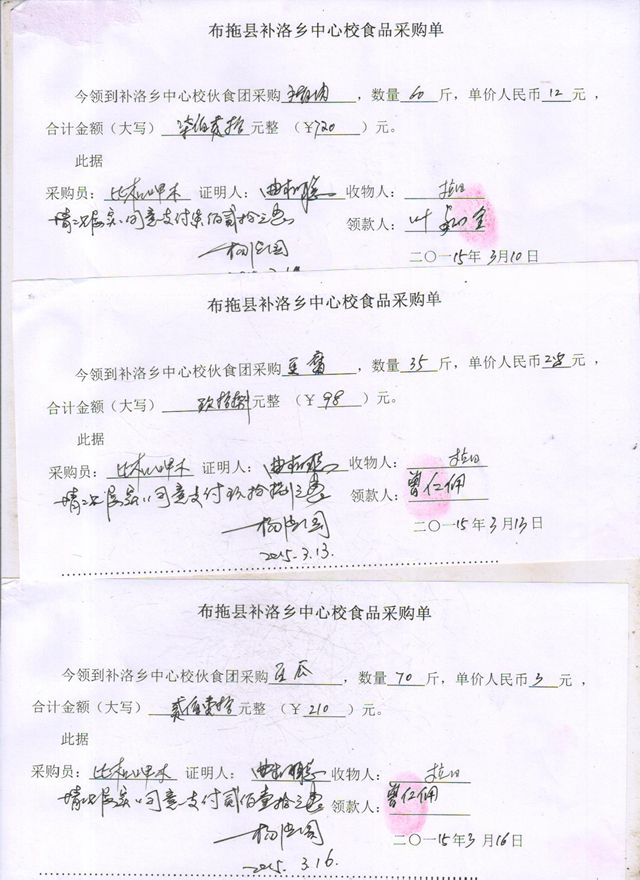 布拖县补洛乡中心校食品采购单
今领到补洛乡中心校伙食团采购 ，数量 60 斤，单价人民币 12 元，
合计金额（大写）柒佰贰拾元整（￥720）元。
此据
采购员： 证明人： 收物人：拉日
情况属实，同意支付柒佰贰拾元 领款人：叶
二〇一15年3月10日
布拖县补洛乡中心校食品采购单
今领到补洛乡中心校伙食团采购豆腐，数量 35 斤，单价人民币 2.8 元，
合计金额（大写）玖拾捌元整（￥98）元。
此据
采购员： 证明人： 收物人：拉日
情况属实，同意支付玖拾捌元 领款人：曾仁佣
二〇一15年3月13日
2015.3.13.
布拖县补洛乡中心校食品采购单
今领到补洛乡中心校伙食团采购 瓜，数量 70 斤，单价人民币 3 元，
合计金额（大写）贰佰壹拾元整（￥210）元。
此据
采购员： 证明人： 收物人：拉日
情况属实，同意支付贰佰壹拾元 领款人：曾仁佣
二〇一15年3月16日
2015.3.16.